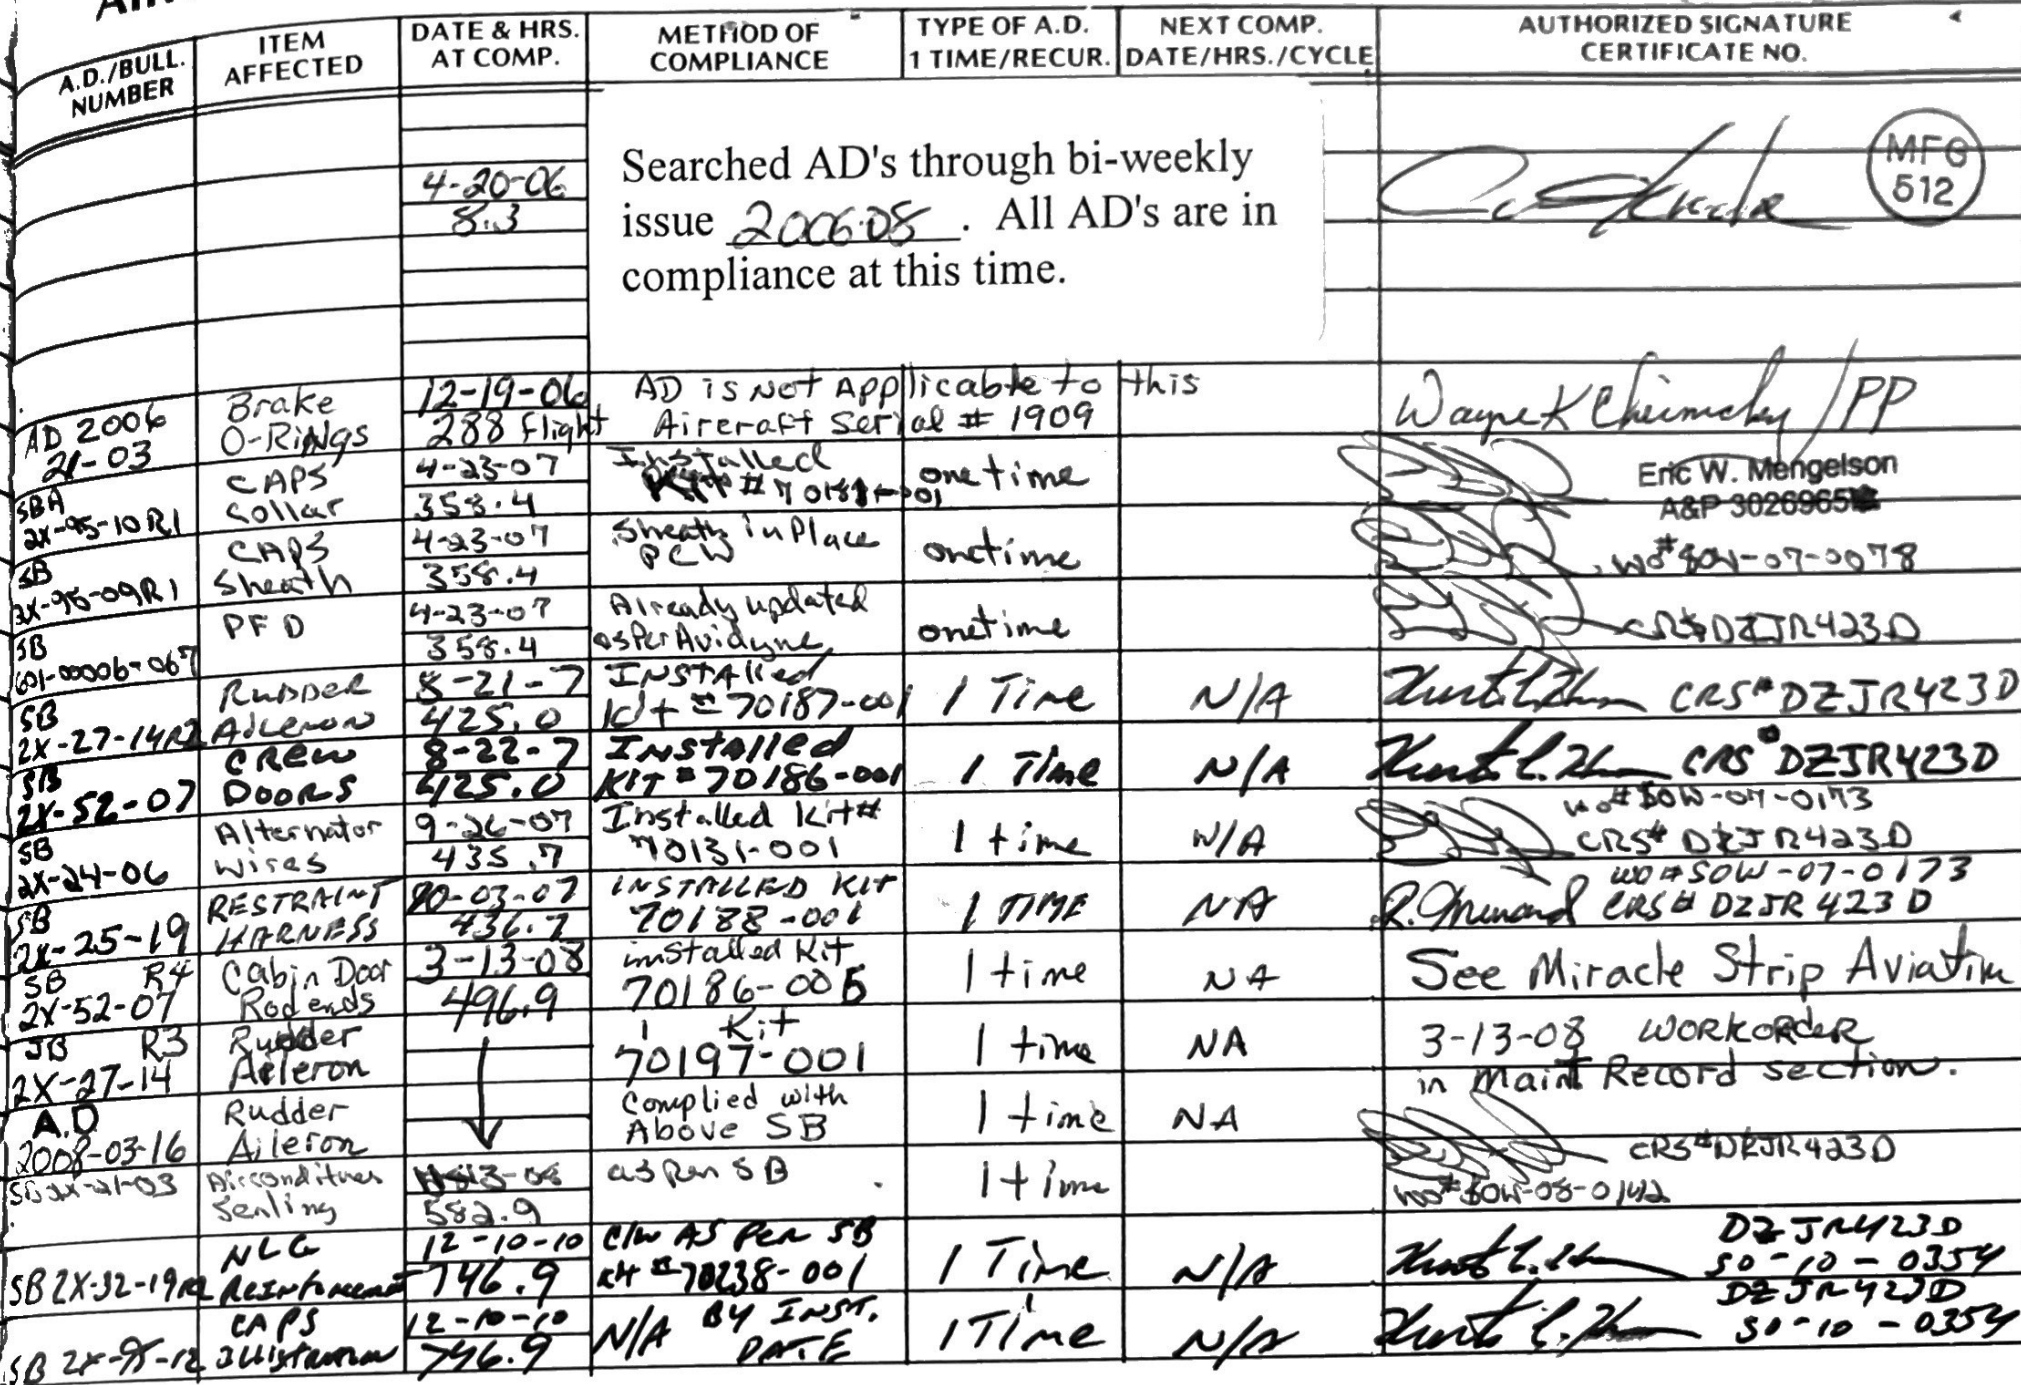 A.D./BULL. NUMBER ITEM AFFECTED DATE & HRS. AT COMP. METHOD OF COMPLIANCE TYPE OF A.D. 1 TIME/RECUR. NEXT COMP. DATE/HRS./CYCLE AUTHORIZED SIGNATURE CERTIFICATE NO.
4-20-06
8.3
Searched AD's through bi-weekly
issue 2006-08. All AD's are in
compliance at this time.
MFG
512
AD 2006 21-03 Brake O-Rings 12-19-06 288 flight AD is Not Applicable to this Aircraft Serial # 1909 Wayne K /PP
SBA 2X-95-10R1 CAPS Collar 4-23-07 358.4 Installed Kit # 70181-001 onetime Eric W. Mengelson A&P 3026965
SB 2X-95-09R1 CAPS Sheath 4-23-07 358.4 Sheath in Place PCW onetime WO# SOW-07-0078
SB 601-00006-067 PFD 4-23-07 358.4 Already updated as Per Avidyne onetime CRS# DZJR423D
SB 2X-27-14R2 Rudder Aileron 8-21-7 425.0 Installed Kit # 70187-001 1 Time N/A CRS# DZJR423D
SB 2X-52-07 Crew Doors 8-22-7 425.0 Installed KIT # 70186-001 1 Time N/A CRS# DZJR423D
SB 2X-24-06 Alternator Wires 9-26-07 435.7 Installed Kit# 70131-001 1 time N/A WO# SOW-07-0173 CRS# DZJR423D
SB 2X-25-19 RESTRAINT HARNESS 10-03-07 436.7 INSTALLED KIT 70188-001 1 TIME NA WO# SOW-07-0173 CRS# DZJR423D
SB R4 2X-52-07 Cabin Door Rodends 3-13-08 496.9 installed Kit 70186-005 1 time NA See Miracle Strip Aviation
SB R3 2X-27-14 Rudder Aileron Kit 70197-001 1 time NA 3-13-08 WORKORDER in Maint Record section.
A.D 2008-03-16 Rudder Aileron Complied with Above SB 1 time NA
SB 2X-21-03 Airconditioner Sealing 582.9 as Per SB 1 time CRS# DZJR423D WO# SOW-08-0142
SB 2X-32-19R2 NLG Reinforcement 12-10-10 746.9 C/W AS Per SB Kit # 70238-001 1 Time N/A DZJR423D SO-10-0354
SB 2X-95-12 CAPS 12-10-10 746.9 N/A BY INST. DATE 1 Time N/A DZJR423D SO-10-0354